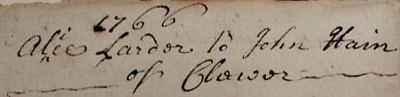 1766
Alice Larder to John Hain
of Clewor